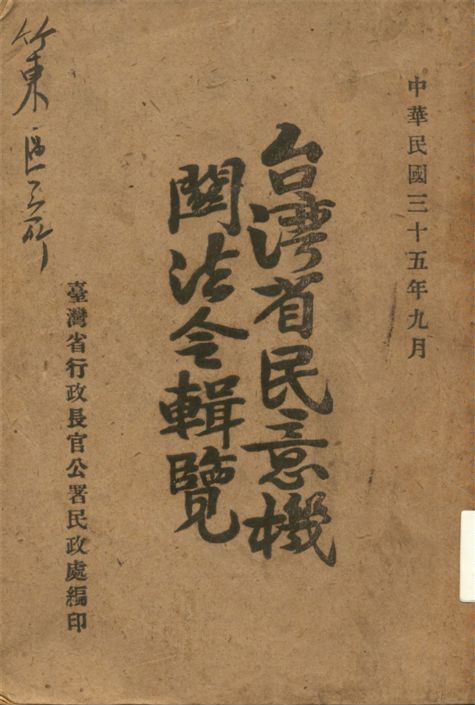 中華民國三十五年九月
台湾省民意機
關法令輯覽
臺灣省行政長官公署民政處編印
竹東區公所